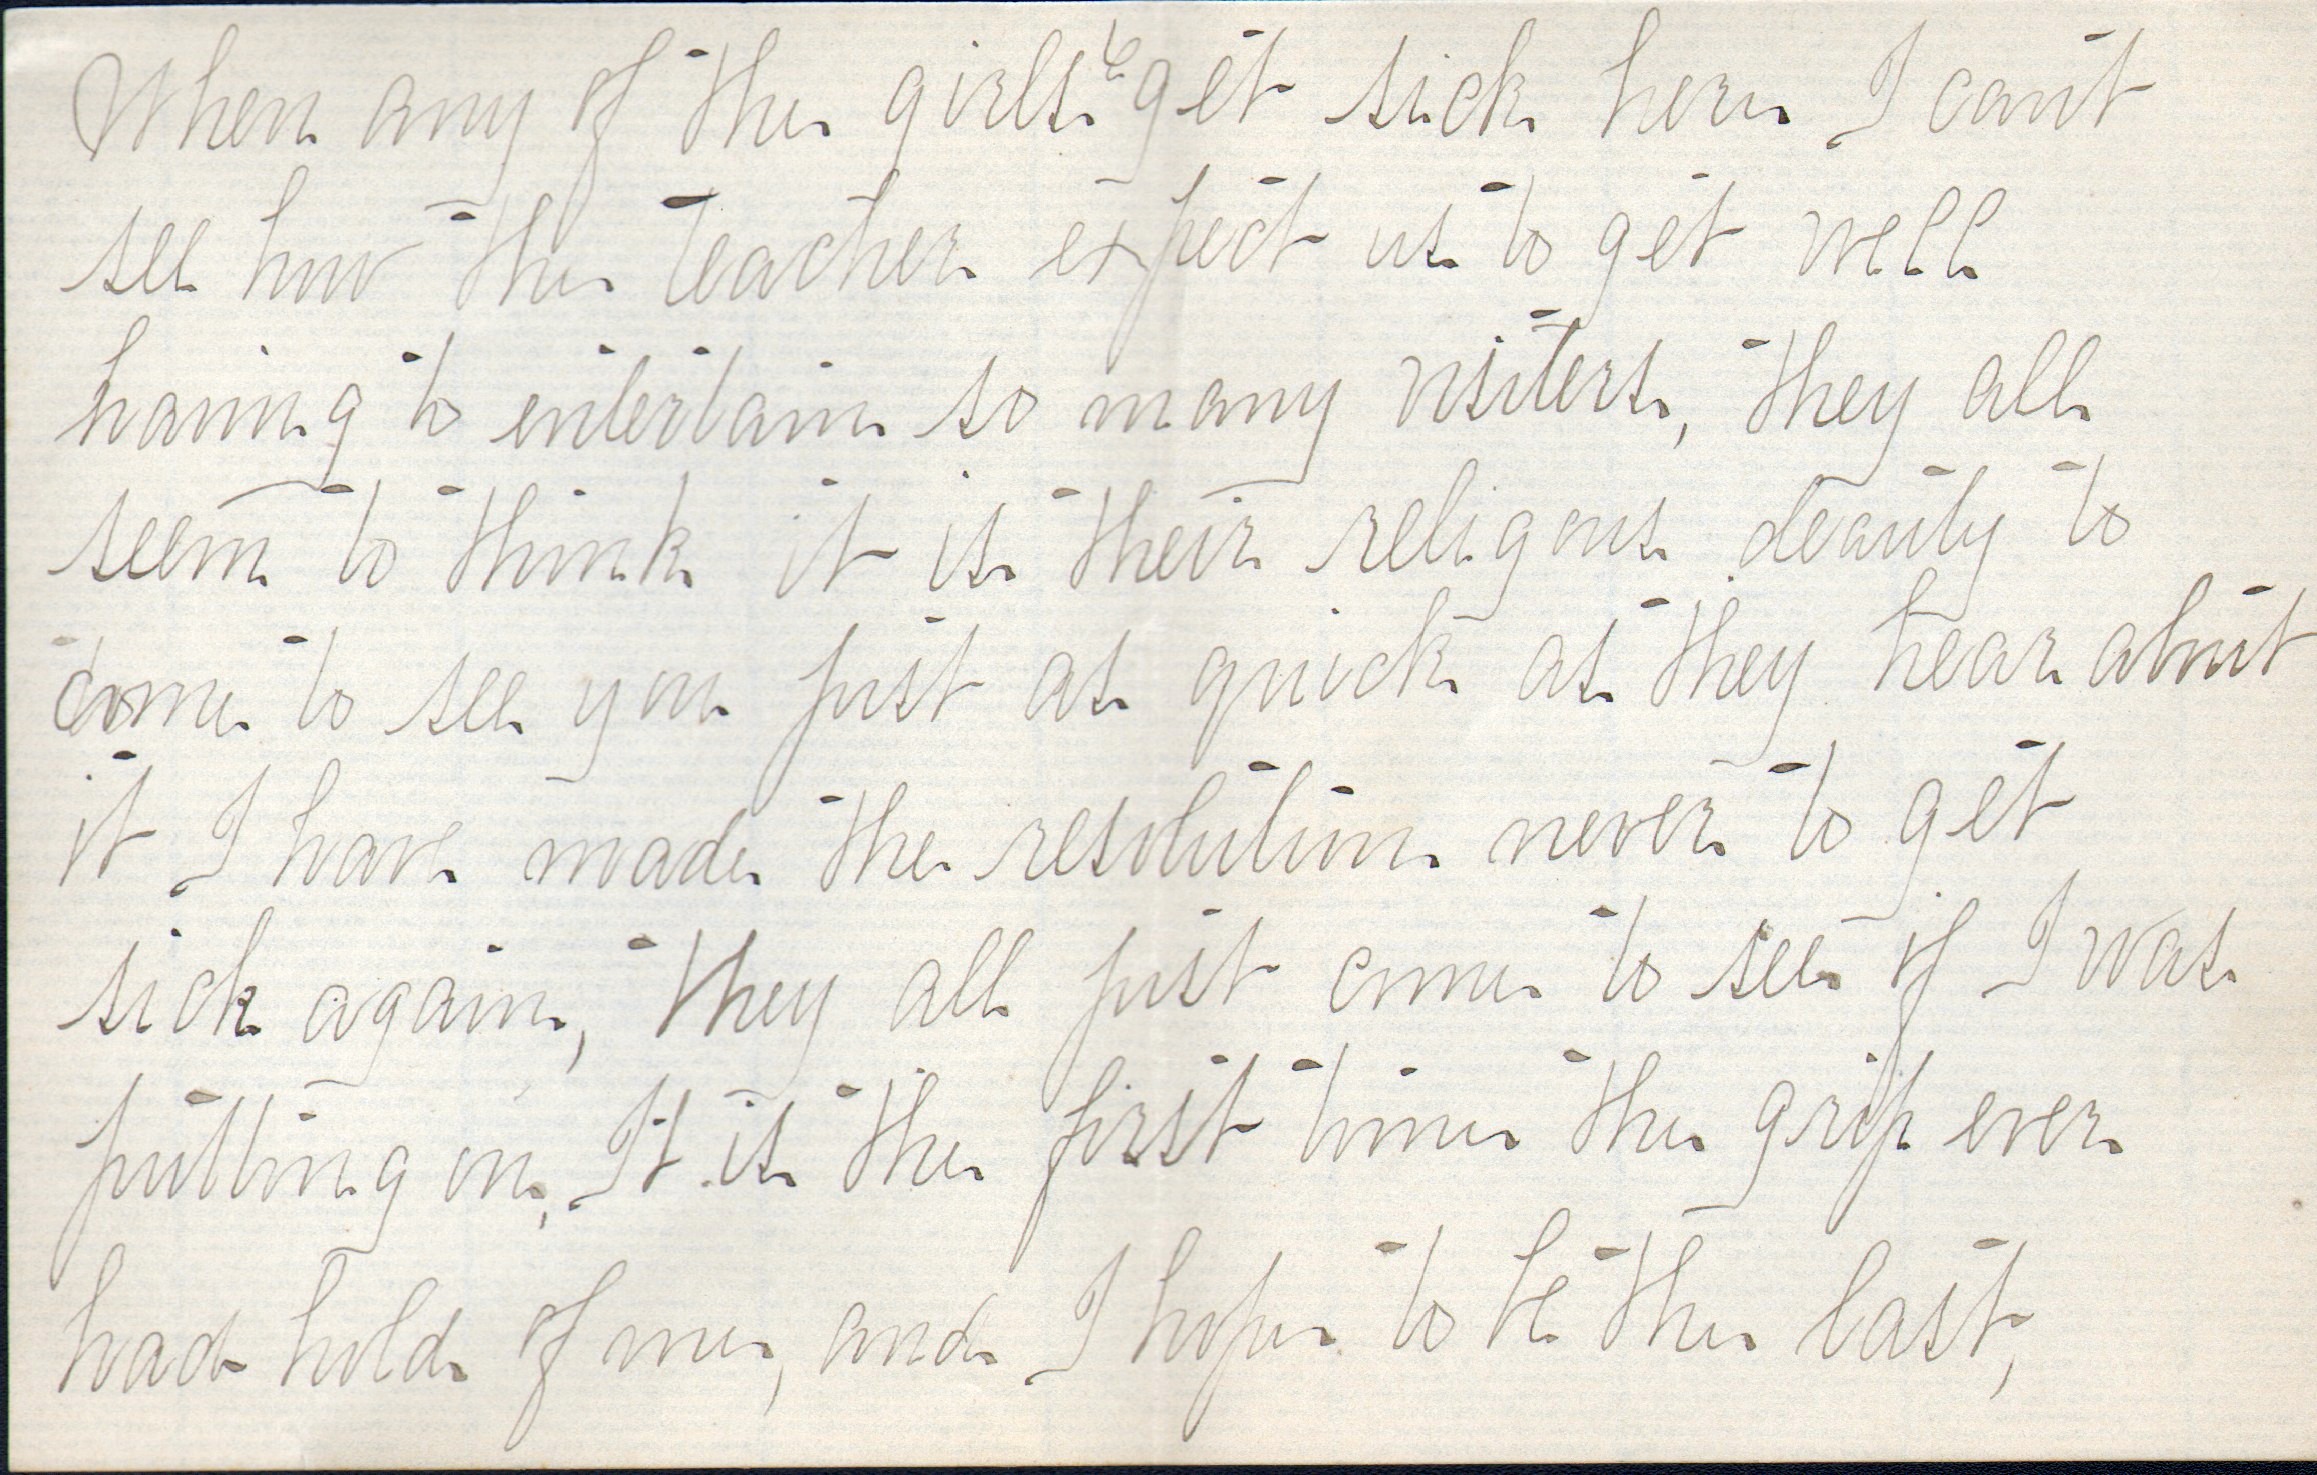 When any of the girls to get sick here I can't
see how the teacher expect us to get well
having to entertain so many visiters, they all
seem to think it is their religous deauty to
come to see you just as quick as they hear about
it I have made the resolution never to get
sick again, they all just come to see if I was
putting on, It is the first time the grip ever
had hold of me, and I hope to be the last,